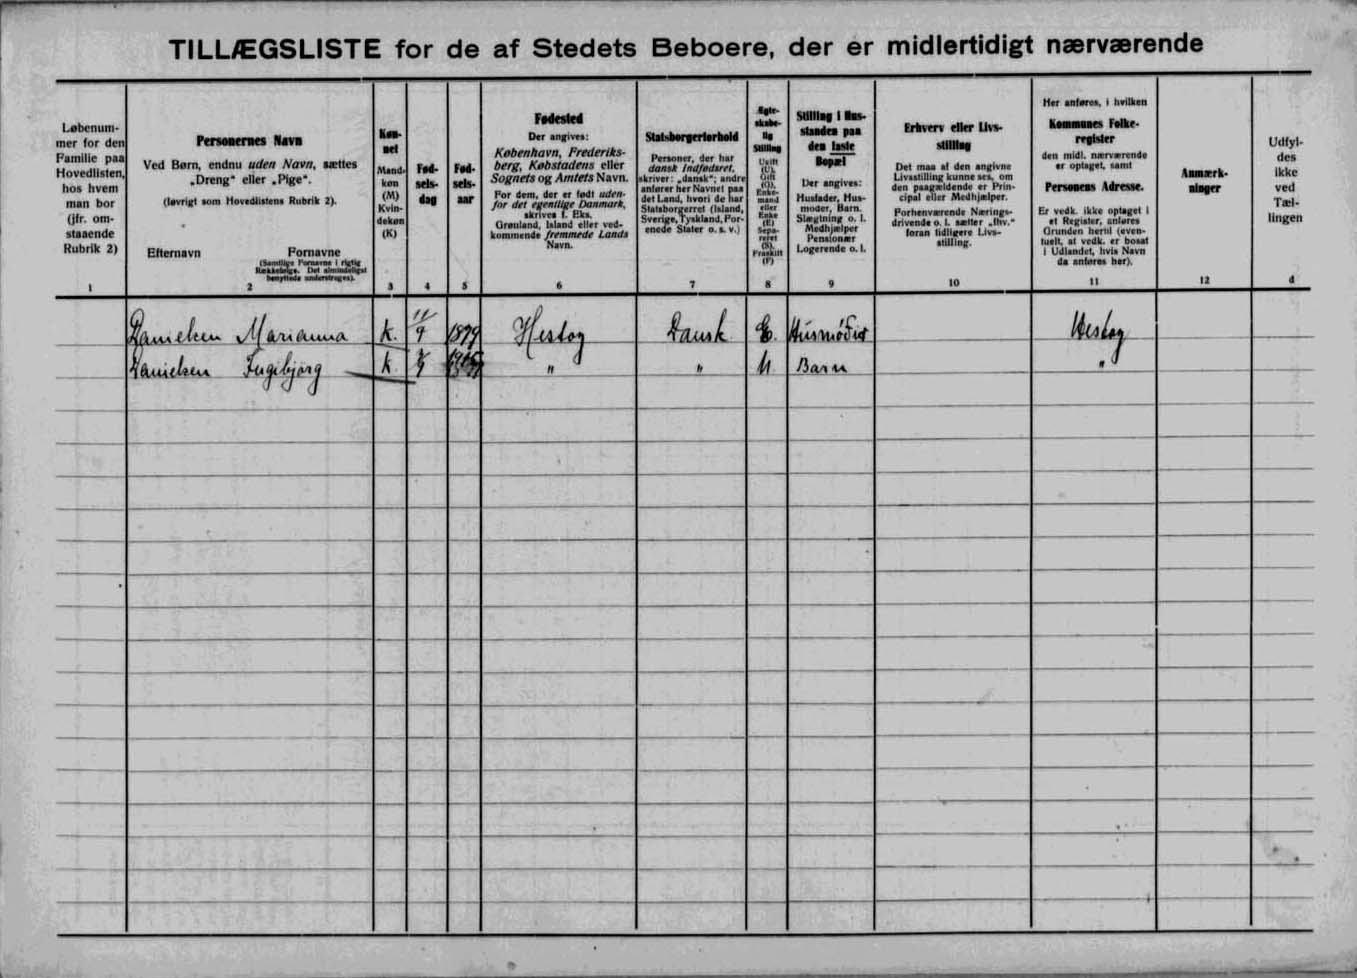 TILLÆGSLISTE for de af Stedets Beboere, der er midlertidigt nærværende
Løbenum-
mer for den
Familie paa
Hovedlisten,
hos hvem
man bor
(jfr. om-
staaende
Rubrik 2)
1
Personernes Navn
Ved Børn, endnu uden Navn, sættes
„Dreng“ eller „Pige“.
(Iøvrigt som Hovedlistens Rubrik 2).
Efternavn Fornavne
(Samtlige Fornavne i rigtig
Rækkefølge. Det almindeligst
benyttede understreges).
2
Køn-
net
Mand-
køn
(M)
Kvin-
dekøn
(K)
3
Fød-
sels-
dag
4
Fød-
sels-
aar
5
Fødested
Der angives:
København, Frederiks-
berg, Købstadens eller
Sognets og Amtets Navn.
For dem, der er født uden-
for det egentlige Danmark,
skrives f. Eks.
Grønland, Island eller ved-
kommende fremmede Lands
Navn.
6
Statsborgerforhold
Personer, der har
dansk Indfødsret,
skriver: „dansk“; andre
anfører her Navnet paa
det Land, hvori de har
Statsborgerret (Island,
Sverige, Tyskland, For-
enede Stater o. s. v.)
7
Ægte-
skabe-
lig
Stilling
Ugift
(U),
Gift
(G),
Enke-
mand
eller
Enke
(E)
Sepa-
reret
(S),
Fraskilt
(F)
8
Stilling i Hus-
standen paa
den faste
Bopæl
Der angives:
Husfader, Hus-
moder, Barn.
Slægtning o. l.
Medhjælper
Pensionær
Logerende o. l.
9
Erhverv eller Livs-
stilling
Det maa af den angivne
Livsstilling kunne ses, om
den paagældende er Prin-
cipal eller Medhjælper.
Forhenværende Nærings-
drivende o. l. sætter „fhv.“
foran tidligere Livs-
stilling.
10
Her anføres, i hvilken
Kommunes Folke-
register
den midl. nærværende
er optaget, samt
Personens Adresse.
Er vedk. ikke optaget i
et Register, anføres
Grunden hertil (even-
tuelt, at vedk. er bosat
i Udlandet, hvis Navn
da anføres her).
11
Anmærk-
ninger
12
Udfyl-
des
ikke
ved
Tæl-
lingen
d
Danielsen Marianna K. 11/9 1879 Hestoy Dansk E. Husmóðir Hestoy
Danielsen Ingibjørg K " " U Barn "